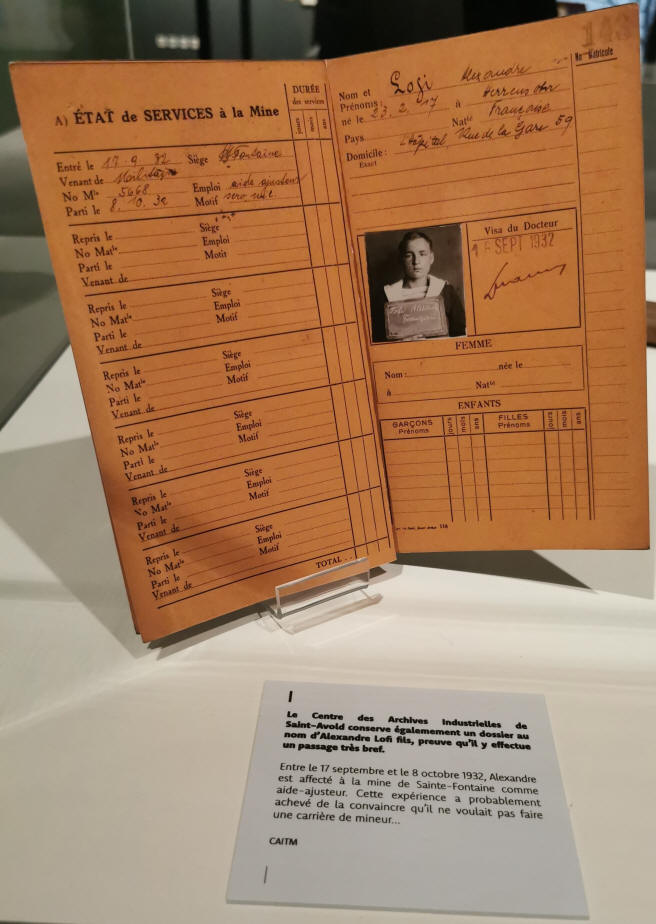 A) ÉTAT de SERVICES à la Mine
DURÉE
des services
jours
mois
ans
Entré le 17. 9. 32 Siège Ste Fontaine
Venant de
No Mle 5668 Emploi aide ajusteur
Parti le 8. 10. 32 Motif
Repris le Siège
No Matle Emploi
Parti le Motif
Venant de
Repris le Siège
No Matle Emploi
Parti le Motif
Venant de
Repris le Siège
No Matle Emploi
Parti le Motif
Venant de
Repris le Siège
No Matle Emploi
Parti le Motif
Venant de
Repris le Siège
No Matle Emploi
Parti le Motif
Venant de
Repris le Siège
No Matle Emploi
Parti le Motif
Venant de
TOTAL . .
143
No Matricule
Nom et Lofi Alexandre
Prénoms:
né le 23. 2. 17 à
Pays Natté Française
Domicile: l'Hôpital Rue de la Gare 59
Exact
Visa du Docteur
15 SEPT 1932
FEMME
Nom: née le
à Natté
ENFANTS
GARÇONS
Prénoms
jours
mois
ans
FILLES
Prénoms
jours
mois
ans
116
Le Centre des Archives Industrielles de
Saint-Avold conserve égalemement un dossier au
nom d'Alexandre Lofi fils, preuve qu'il y effectue
un passage très bref.
Entre le 17 septembre et le 8 octobre 1932, Alexandre
est affecté à la mine de Sainte-Fontaine comme
aide-ajusteur. Cette expérience a probablement
achevé de la convaincre qu'il ne voulait pas faire
une carrière de mineur...
CAITM